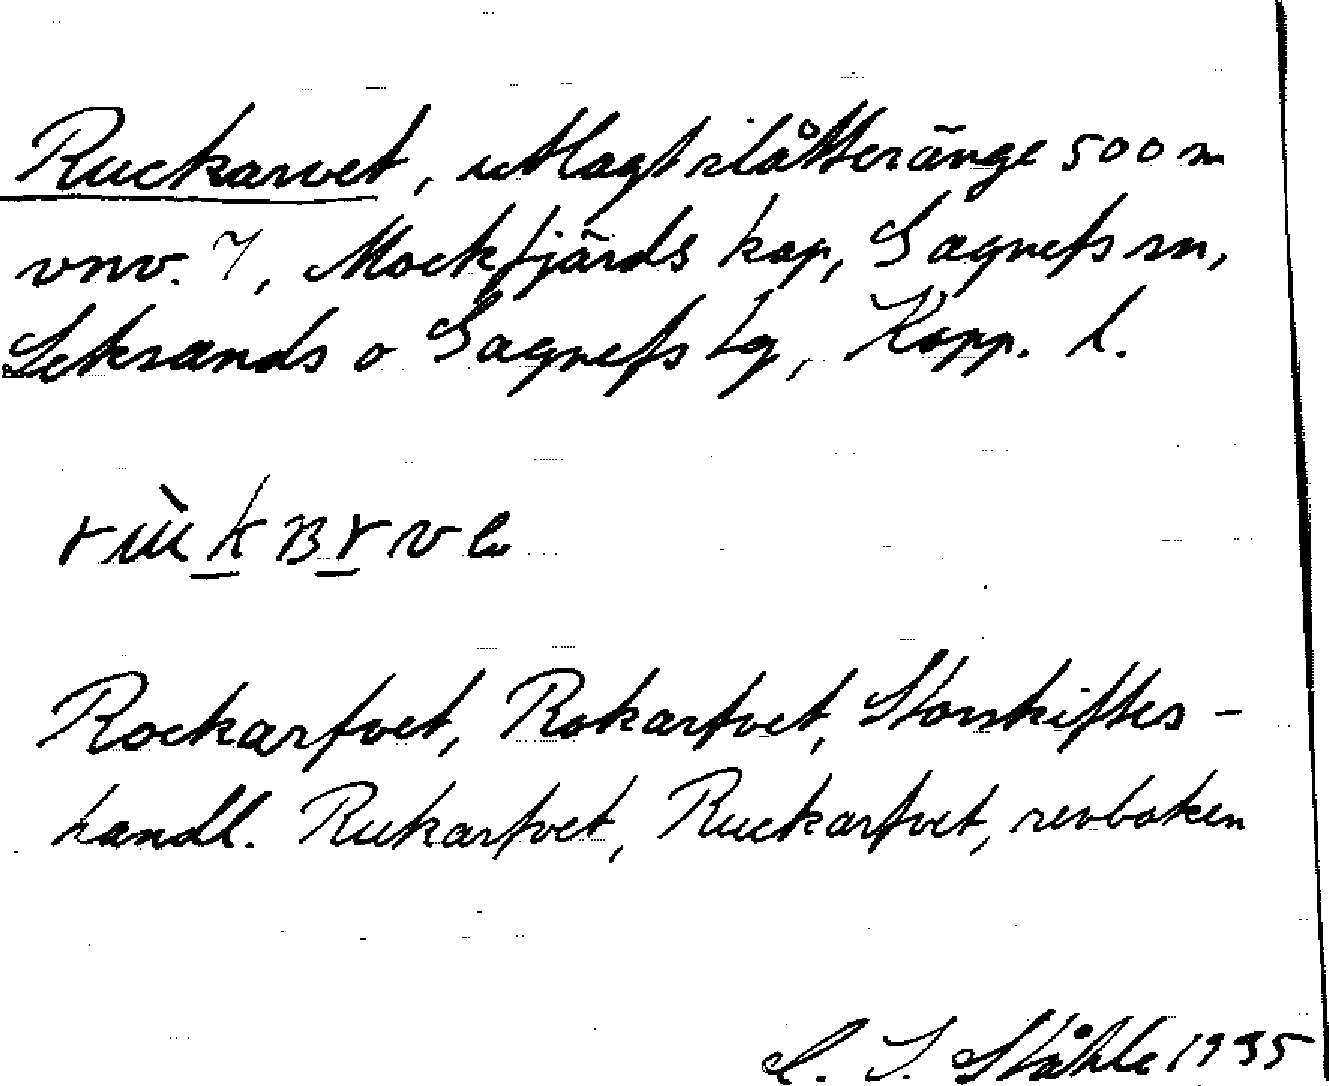 Ruckarvet, utlagt slåtteränge 500 m
vnv. 7, Mockfjärds kap, Gagnefs sn,
Leksands o Gagnefs tg, Kopp. l.
Rockarfvet, Rokarfvet, Storskiftes-
handl. Rukarfvet, Ruckarfvet, revboken
C. I. Ståhle 1935